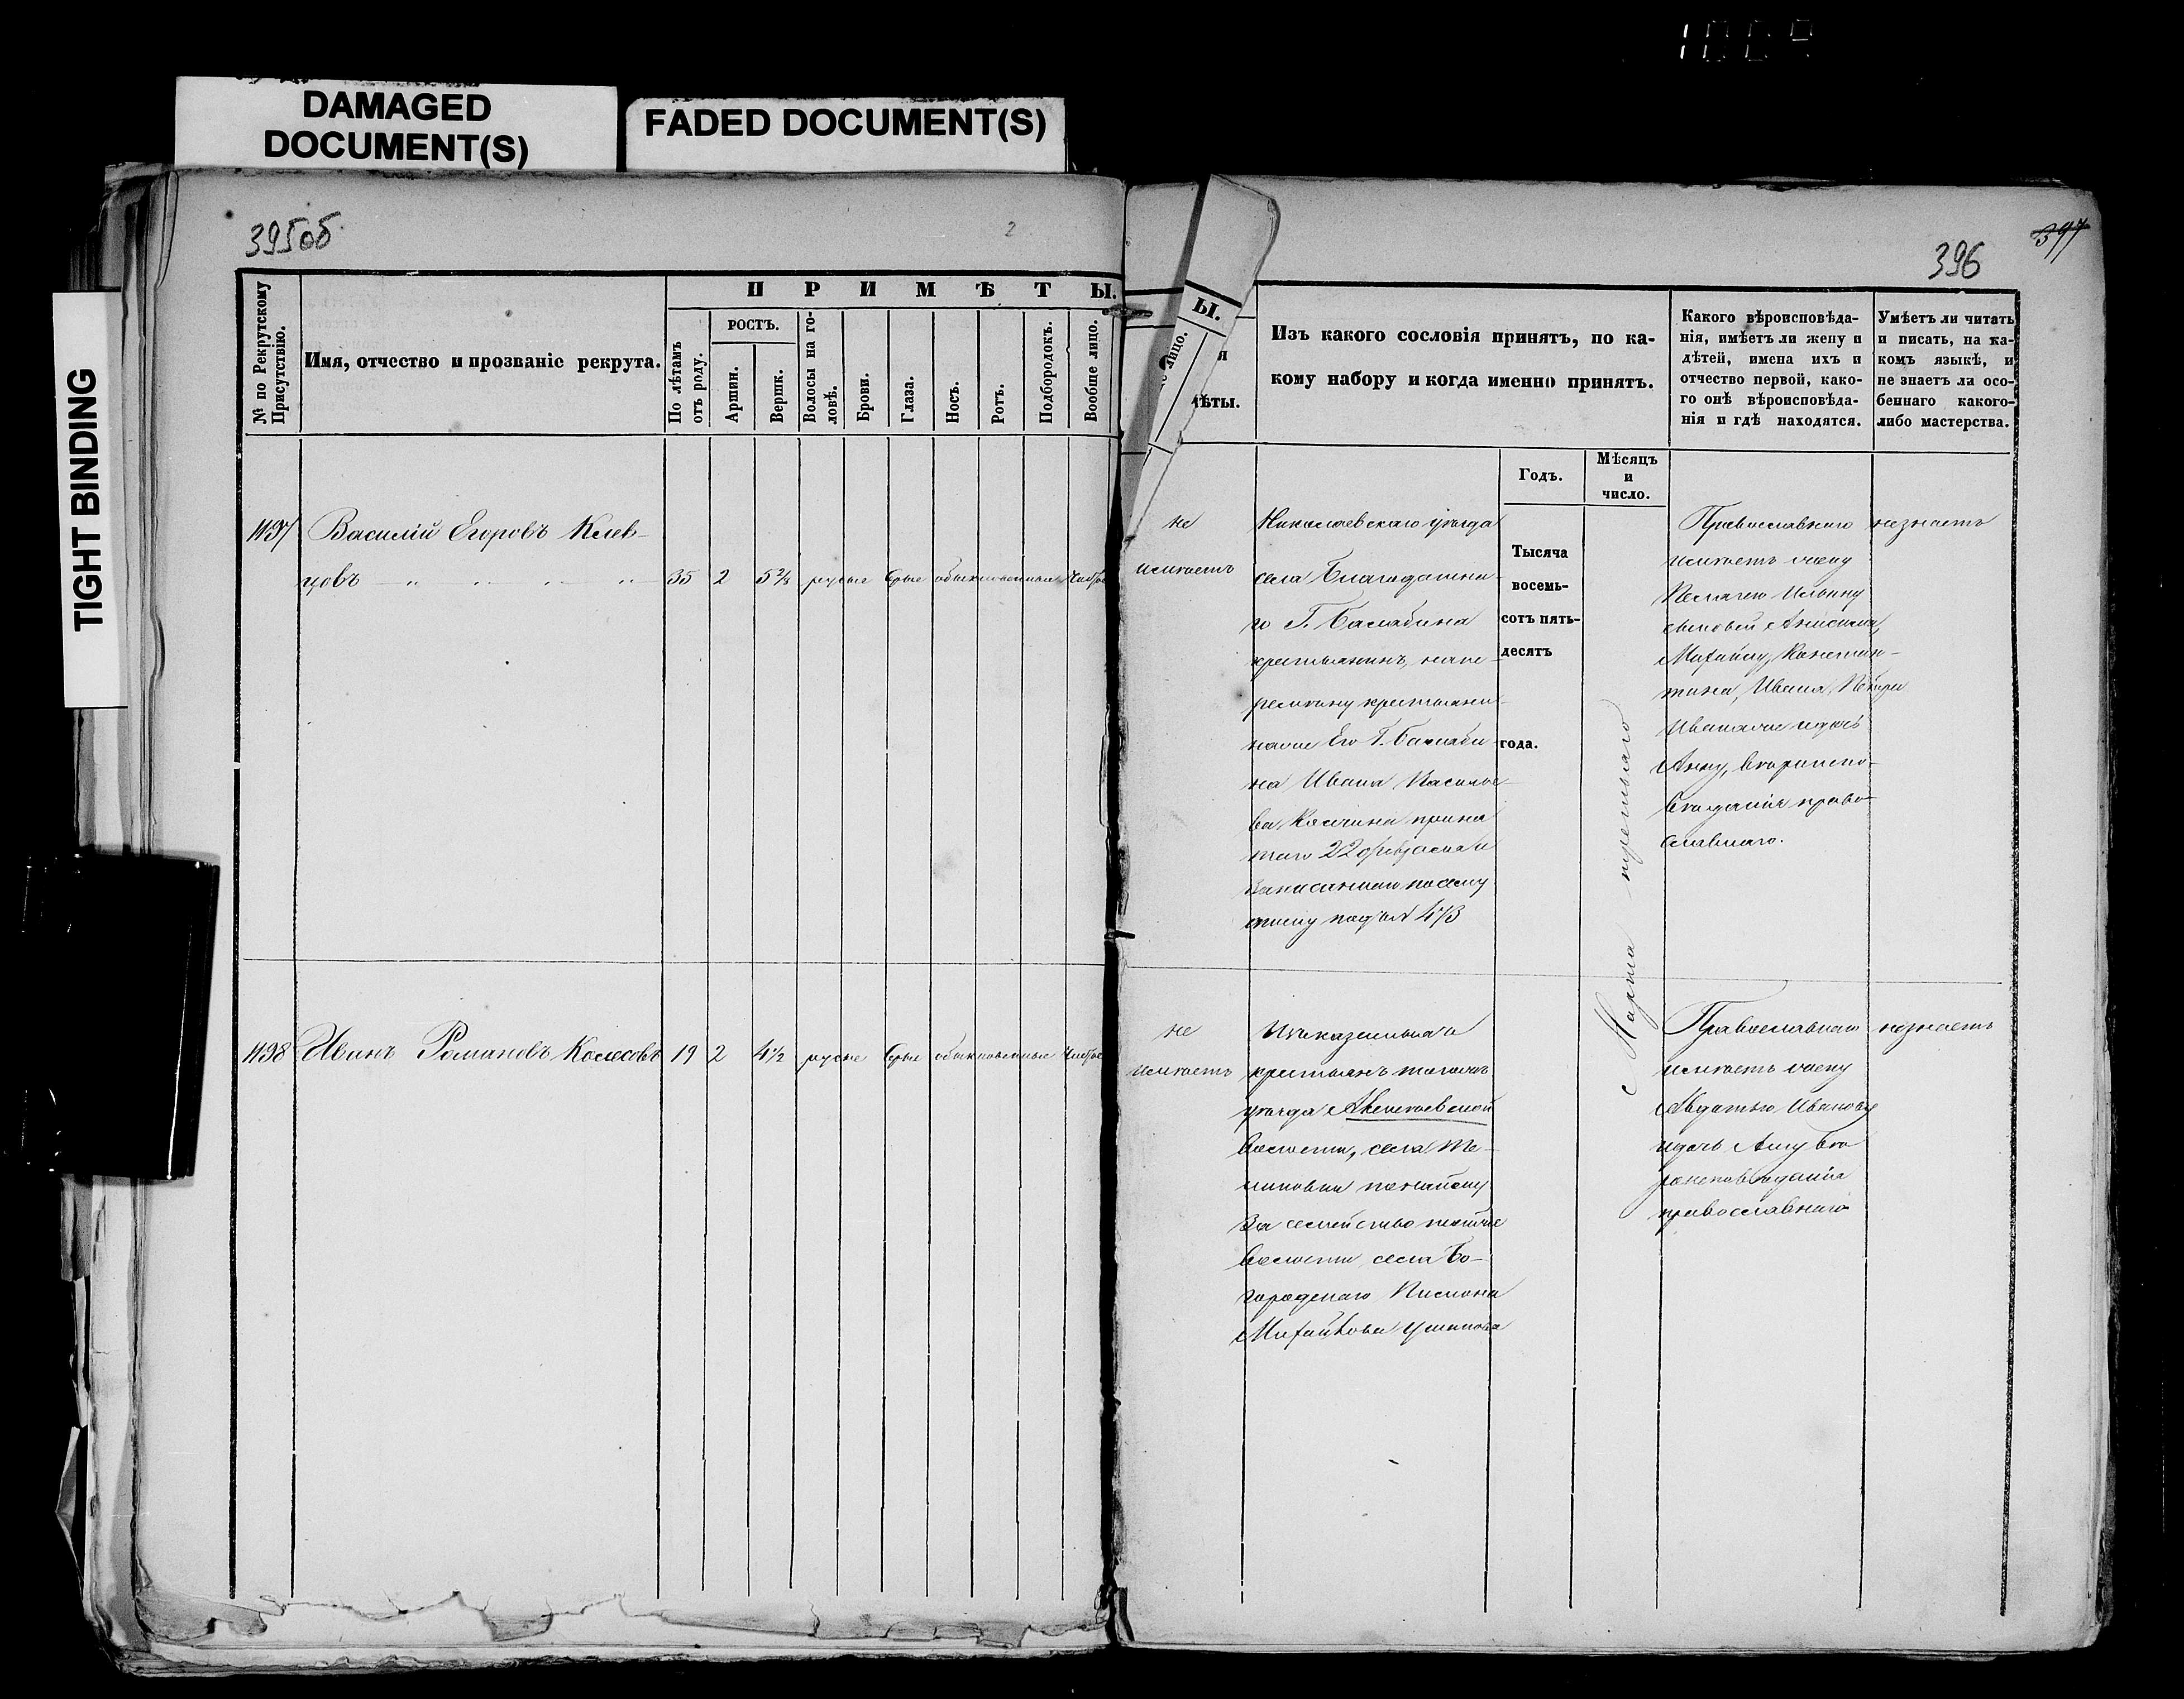 1009
DAMAGED
DOCUMENT(S)
FADED DOCUMENT(S)
TIGHT BINDING
395об
2
396
397
№ по Рекрутскому
Присутствію.
Имя, отчество и прозваніе рекрута.
ПРИМѢТЫ.
По лѣтамъ
отъ роду.
РОСТЪ.
Аршин.
Вершк.
Волосы на го-
ловѣ.
Брови.
Глаза.
Носъ.
Ротъ.
Подбородокъ.
Вообще лицо.
Ы.
лицо.
я
мѣты.
Изъ какого сословія принятъ, по ка-
кому набору и когда именно принятъ.
Годъ.
Мѣсяцъ
и
число.
Какого вѣроисповѣда-
нія, имѣетъ ли жену и
дѣтей, имена ихъ и
отчество первой, како-
го онѣ вѣроисповѣда-
нія и гдѣ находятся.
Умѣетъ ли читать
и писать, на ка-
комъ языкѣ, и
не знаетъ ли осо-
беннаго какого-
либо мастерства.
1197 Василій Егоровъ Клев-
цовъ 35 2 5 2/8 русые сѣрые обыкновенные чистое
не
имѣетъ
Николаевскаго уѣзда
села Благодатна-
го Г. Баслабина
крестьянинъ, напе-
ремѣну крестьяни-
на Ивана Василье-
ва принята
таго 22 февраля и
записаннаго посему
списку подъ № 473
Тысяча
восемь-
сотъ пять-
десятъ
года.
Марта третьяго
Православнаго
имѣетъ жену
Пелагею Ильину
сыновей Анисима,
Михайлу, Констан-
тина, Ивана, Петра
Ивана и дочь
Анну, вѣроиспо-
вѣданія право-
славнаго.
незнаетъ
1198 Иванъ Романовъ Колесовъ 19 2 4 1/2 русые сѣрые обыкновенные чистое
не
имѣетъ
Изъ казенныхъ
крестьянъ тогожъ
уѣзда Алексѣевской
волости, села Те-
ликовки понайму
за семейство тойже
волости села Бо-
городскаго
Михайлова
Православнаго
имѣетъ жену
Авдотью Иванову
и дочь Анну вѣ-
роисповѣданія
православнаго
незнаетъ